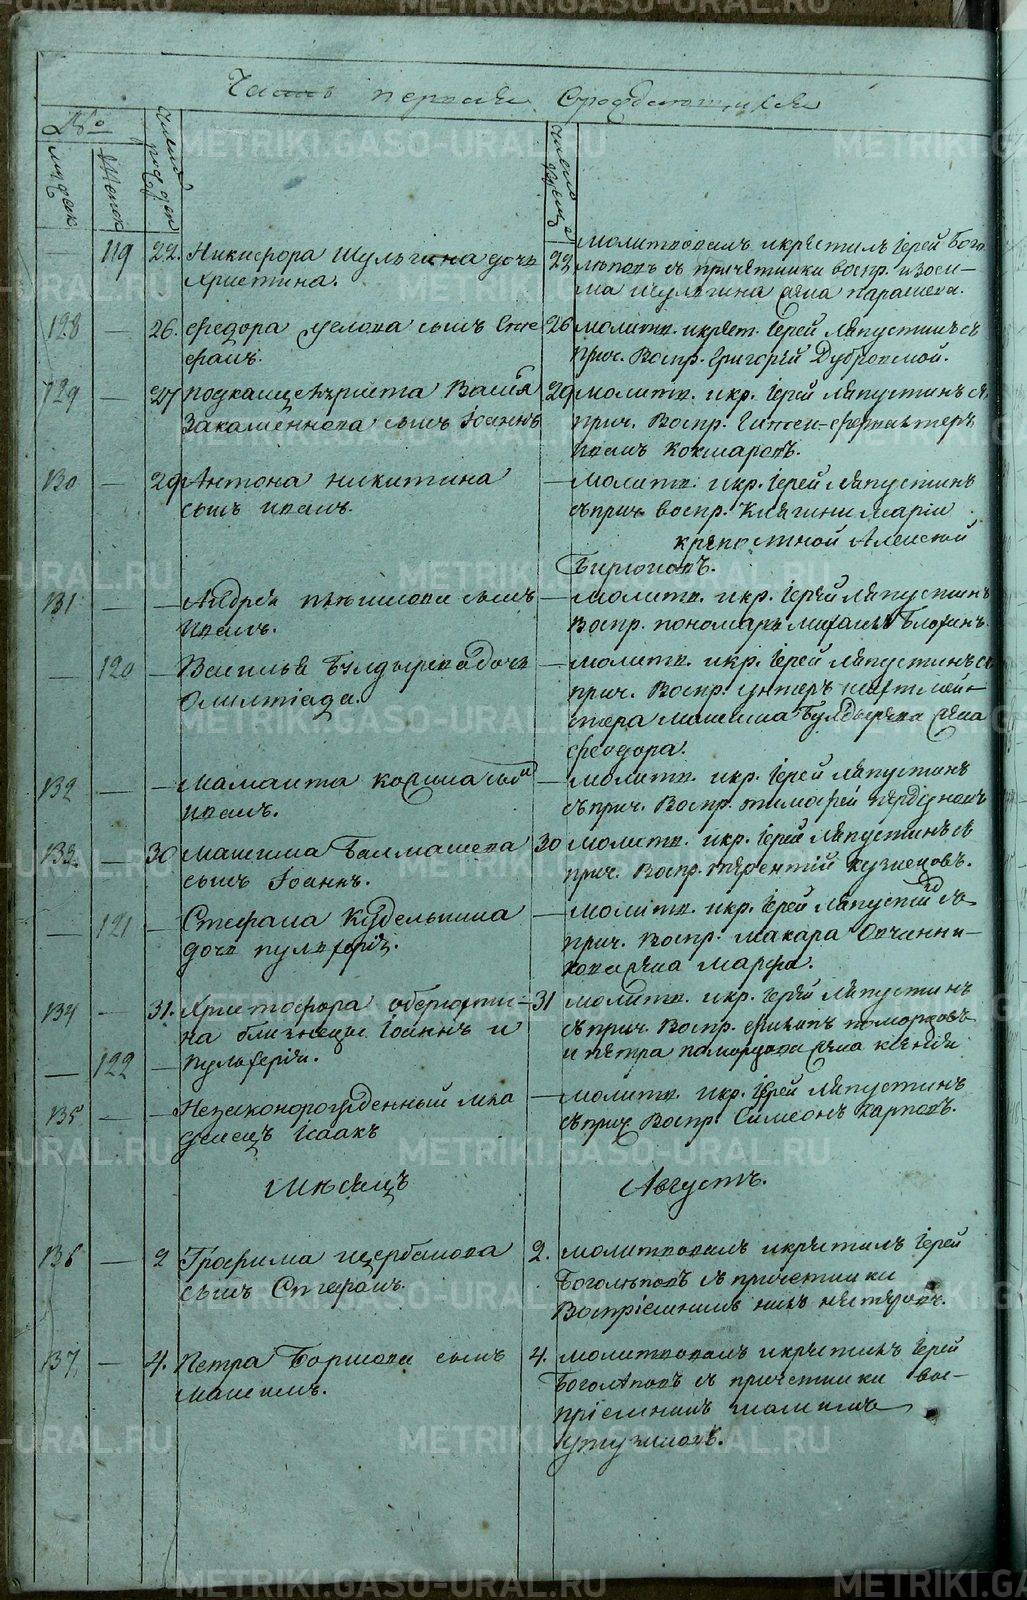 Часть первая о рождающихся
№
Мужск
Женск
Число рожден
Число крещ
119 22. Никифора Шульгина дочь
Христина.
22 молитвовалъ и крестилъ Іерей Бого
лѣповъ съ причетники воспр. изоси-
ма шульгина жена парасковья.
128 — 26. федора сын Сте
фанъ.
26 молитв. и крест. Іерей Ляпустинъ съ
прич. Воспр. Григорій Дубровной.
129 — 27 подканцелѣриста Василья
Закаменнова сынъ Іоаннъ
29 молитв. и кр. Іерей Ляпустинъ съ
прич. Воспр. Гиттен-фервалтеръ
иванъ Кокшаровъ.
130 — 29 Антона никитина
сынъ иванъ.
— молитв. и кр. Іерей Ляпустинъ
съ прич. воспр. Княгини Маріи
крепостной Алексей
Бирюковъ.
131 — — Андрея сынъ
иванъ.
— молитв. и кр. Іерей Ляпустинъ
Воспр. пономарь михаилъ Блохинъ.
— 120 — Василья Булдырева дочь
Олимпіада.
— молитв. и кр. Іерей Ляпустинъ съ
прич. Воспр. унтеръ шихтмей-
стера максима Булдырева жена
феодора.
132 — — маманта сынъ
иванъ.
— молитв. и кр. Іерей Ляпустинъ
съ прич. Воспр. тимофей
133 — 30 максима Балмашева
сынъ Іоаннъ.
30 молитв. и кр. Іерей Ляпустинъ съ
прич. Воспр. терентій кузнецовъ.
— 121 — Стефана Куделькина
дочь пульхерія.
— молитв. и кр. Іерей Ляпустинъ съ
прич. Воспр. макара Овчинни-
кова жена марфа.
134 — 31. Христофора оберюхти-
на близнецы Іоаннъ и
— 122 — пульхерія.
31 молитв. и кр. Іерей Ляпустинъ
съ прич. Воспр. поморцовъ
и петра поморцова жена ксенія
135 — — Незаконорожденный мла
денецъ Исаакъ
— молитв. и кр. Іерей Ляпустинъ
съ прич. Воспр. Симеонъ Карповъ.
Мѣсяцъ Августъ.
136 — 2 Трофима щербакова
сынъ Стефанъ.
2. молитвовалъ и крестилъ Іерей
Боголѣповъ съ причетники
Воспріемникъ нестеровъ.
137. — 4. Петра Боршова сынъ
максимъ.
4. молитвовалъ и крестилъ Іерей
Боголѣповъ съ причетники вос-
пріемникъ максимъ
METRIKI.GASO-URAL.RU